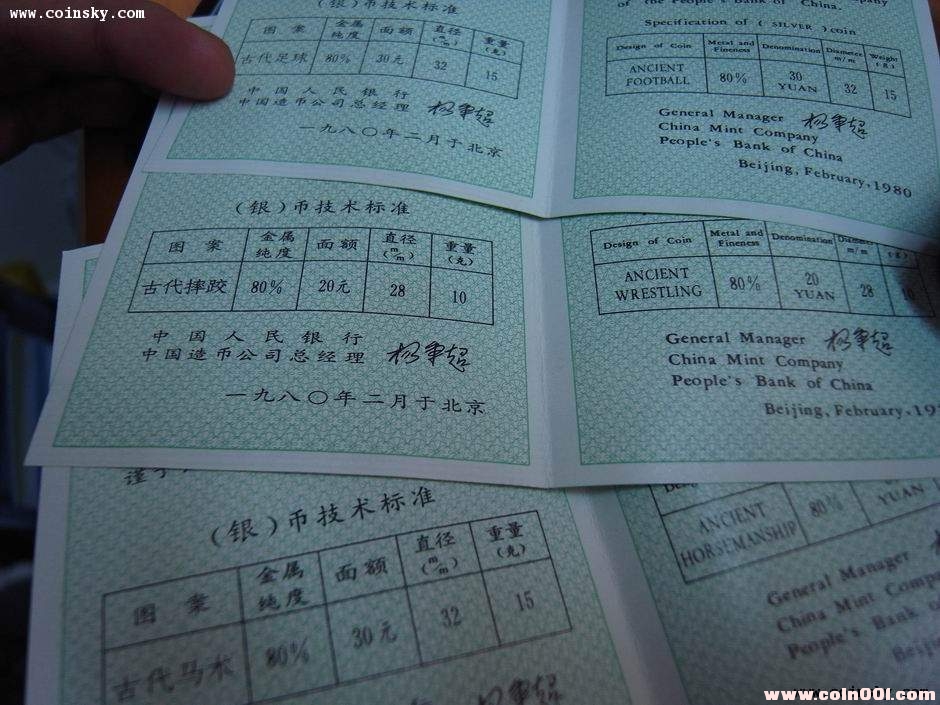 www.coinsky.com
(银)币技术标准
图 案 金属纯度 面额 直径(m/m) 重量(克)
古代足球 80% 30元 32 15
中国人民银行
中国造币公司总经理 杨秉超
一九八〇年二月于北京
of the People's Bank of China.
Specification of ( SILVER ) coin
Design of Coin Metal and Fineness Denomination Diameter m/m Weight (g)
ANCIENT FOOTBALL 80% 30 YUAN 32 15
General Manager 杨秉超
China Mint Company
People's Bank of China
Beijing, February, 1980
(银)币技术标准
图 案 金属纯度 面额 直径(m/m) 重量(克)
古代摔跤 80% 20元 28 10
中国人民银行
中国造币公司总经理 杨秉超
一九八〇年二月于北京
Design of Coin Metal and Fineness Denomination Diameter m/m (g)
ANCIENT WRESTLING 80% 20 YUAN 28 10
General Manager 杨秉超
China Mint Company
People's Bank of China
Beijing, February, 19
(银)币技术标准
图 案 金属纯度 面额 直径(m/m) 重量(克)
古代马术 80% 30元 32 15
ANCIENT HORSEMANSHIP 80% YUAN
General Manager
China Mint Compan
People's Bank of
Beij
www.coin001.com